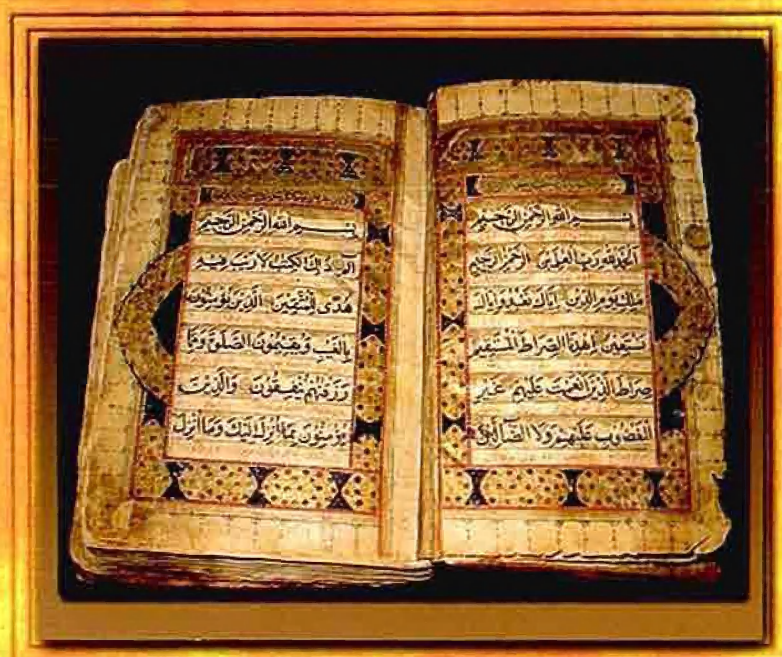 بسم الله الرحمن الرحيم
الحمد لله رب العلمين الرحمن الرحيم
ملك يوم الدين اياك نعبد واياك
نستعين اهدنا الصراط المستقيم
صراط الذين انعمت عليهم غير
المغضوب عليهم ولا الضالين
بسم الله الرحمن الرحيم
الم ذلك الكتب لا ريب فيه
هدى للمتقين الذين يؤمنون
بالغيب ويقيمون الصلوة ومما
رزقنهم ينفقون والذين
يؤمنون بما انزل اليك وما انزل